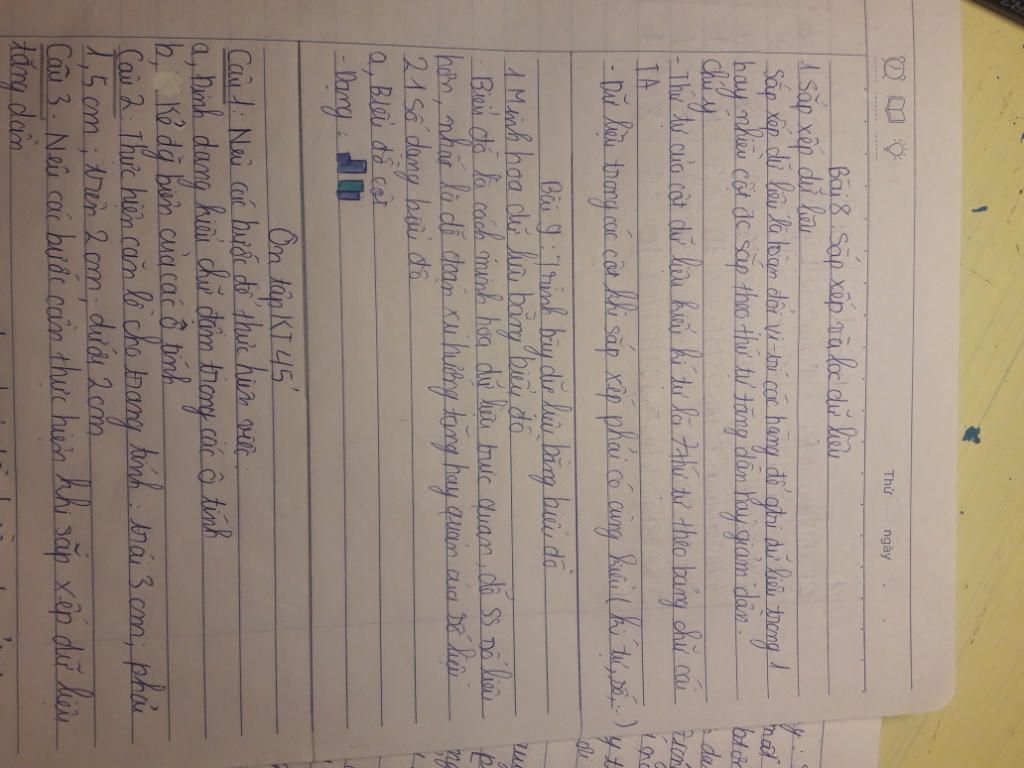 Thứ ngày
Bài 8: Sắp xếp và lọc dữ liệu
1 Sắp xếp dữ liệu
Sắp xếp dữ liệu là hoán đổi vị trí các hàng để ghi dữ liệu trong 1
hay nhiều cột đc sắp theo thứ tự tăng dần hay giảm dần.
chú ý
- Thứ tự của cột dữ liệu kiểu kí tự là thứ tự theo bảng chữ cái
TA
- Dữ liệu trong các cột khi sắp xếp phải có cùng kiểu (kí tự, số...)
Bài 9: Trình bày dữ liệu bằng biểu đồ
1 Minh họa dữ liệu bằng biểu đồ
- Biểu đồ là cách minh họa dữ liệu trực quan, dễ SS số liệu
hơn, nhất là dễ đoán xu hướng tăng hay giảm của số liệu
2 1 số dạng biểu đồ
a, Biểu đồ cột
- Dạng:
Ôn tập KT 45'
Câu 1. Nêu các bước để thực hiện việc.
a, Định dạng kiểu chữ đậm trong các ô tính
b, Kẻ đg biên của các ô tính
Câu 2. Thực hiện căn lề cho trang tính. trái 3 cm, phải
1,5 cm, trên 2 cm, dưới 2 cm
Câu 3. Nêu các bước cần thực hiện khi sắp xếp dữ liệu
tăng dần